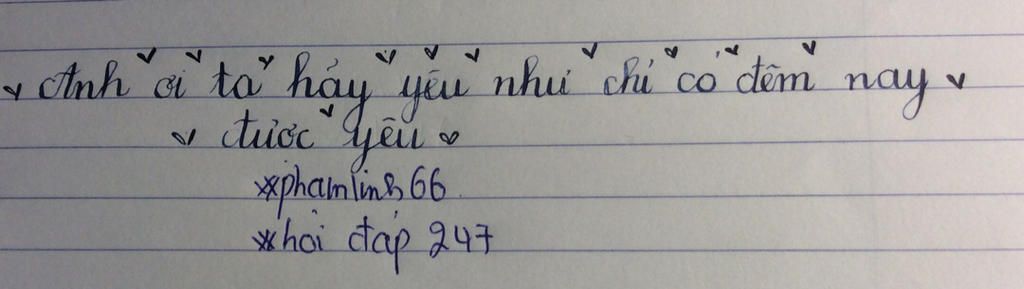 Anh ơi ta hãy yêu như chỉ có đêm nay
được yêu
*phamlinh66
*hỏi đáp 247